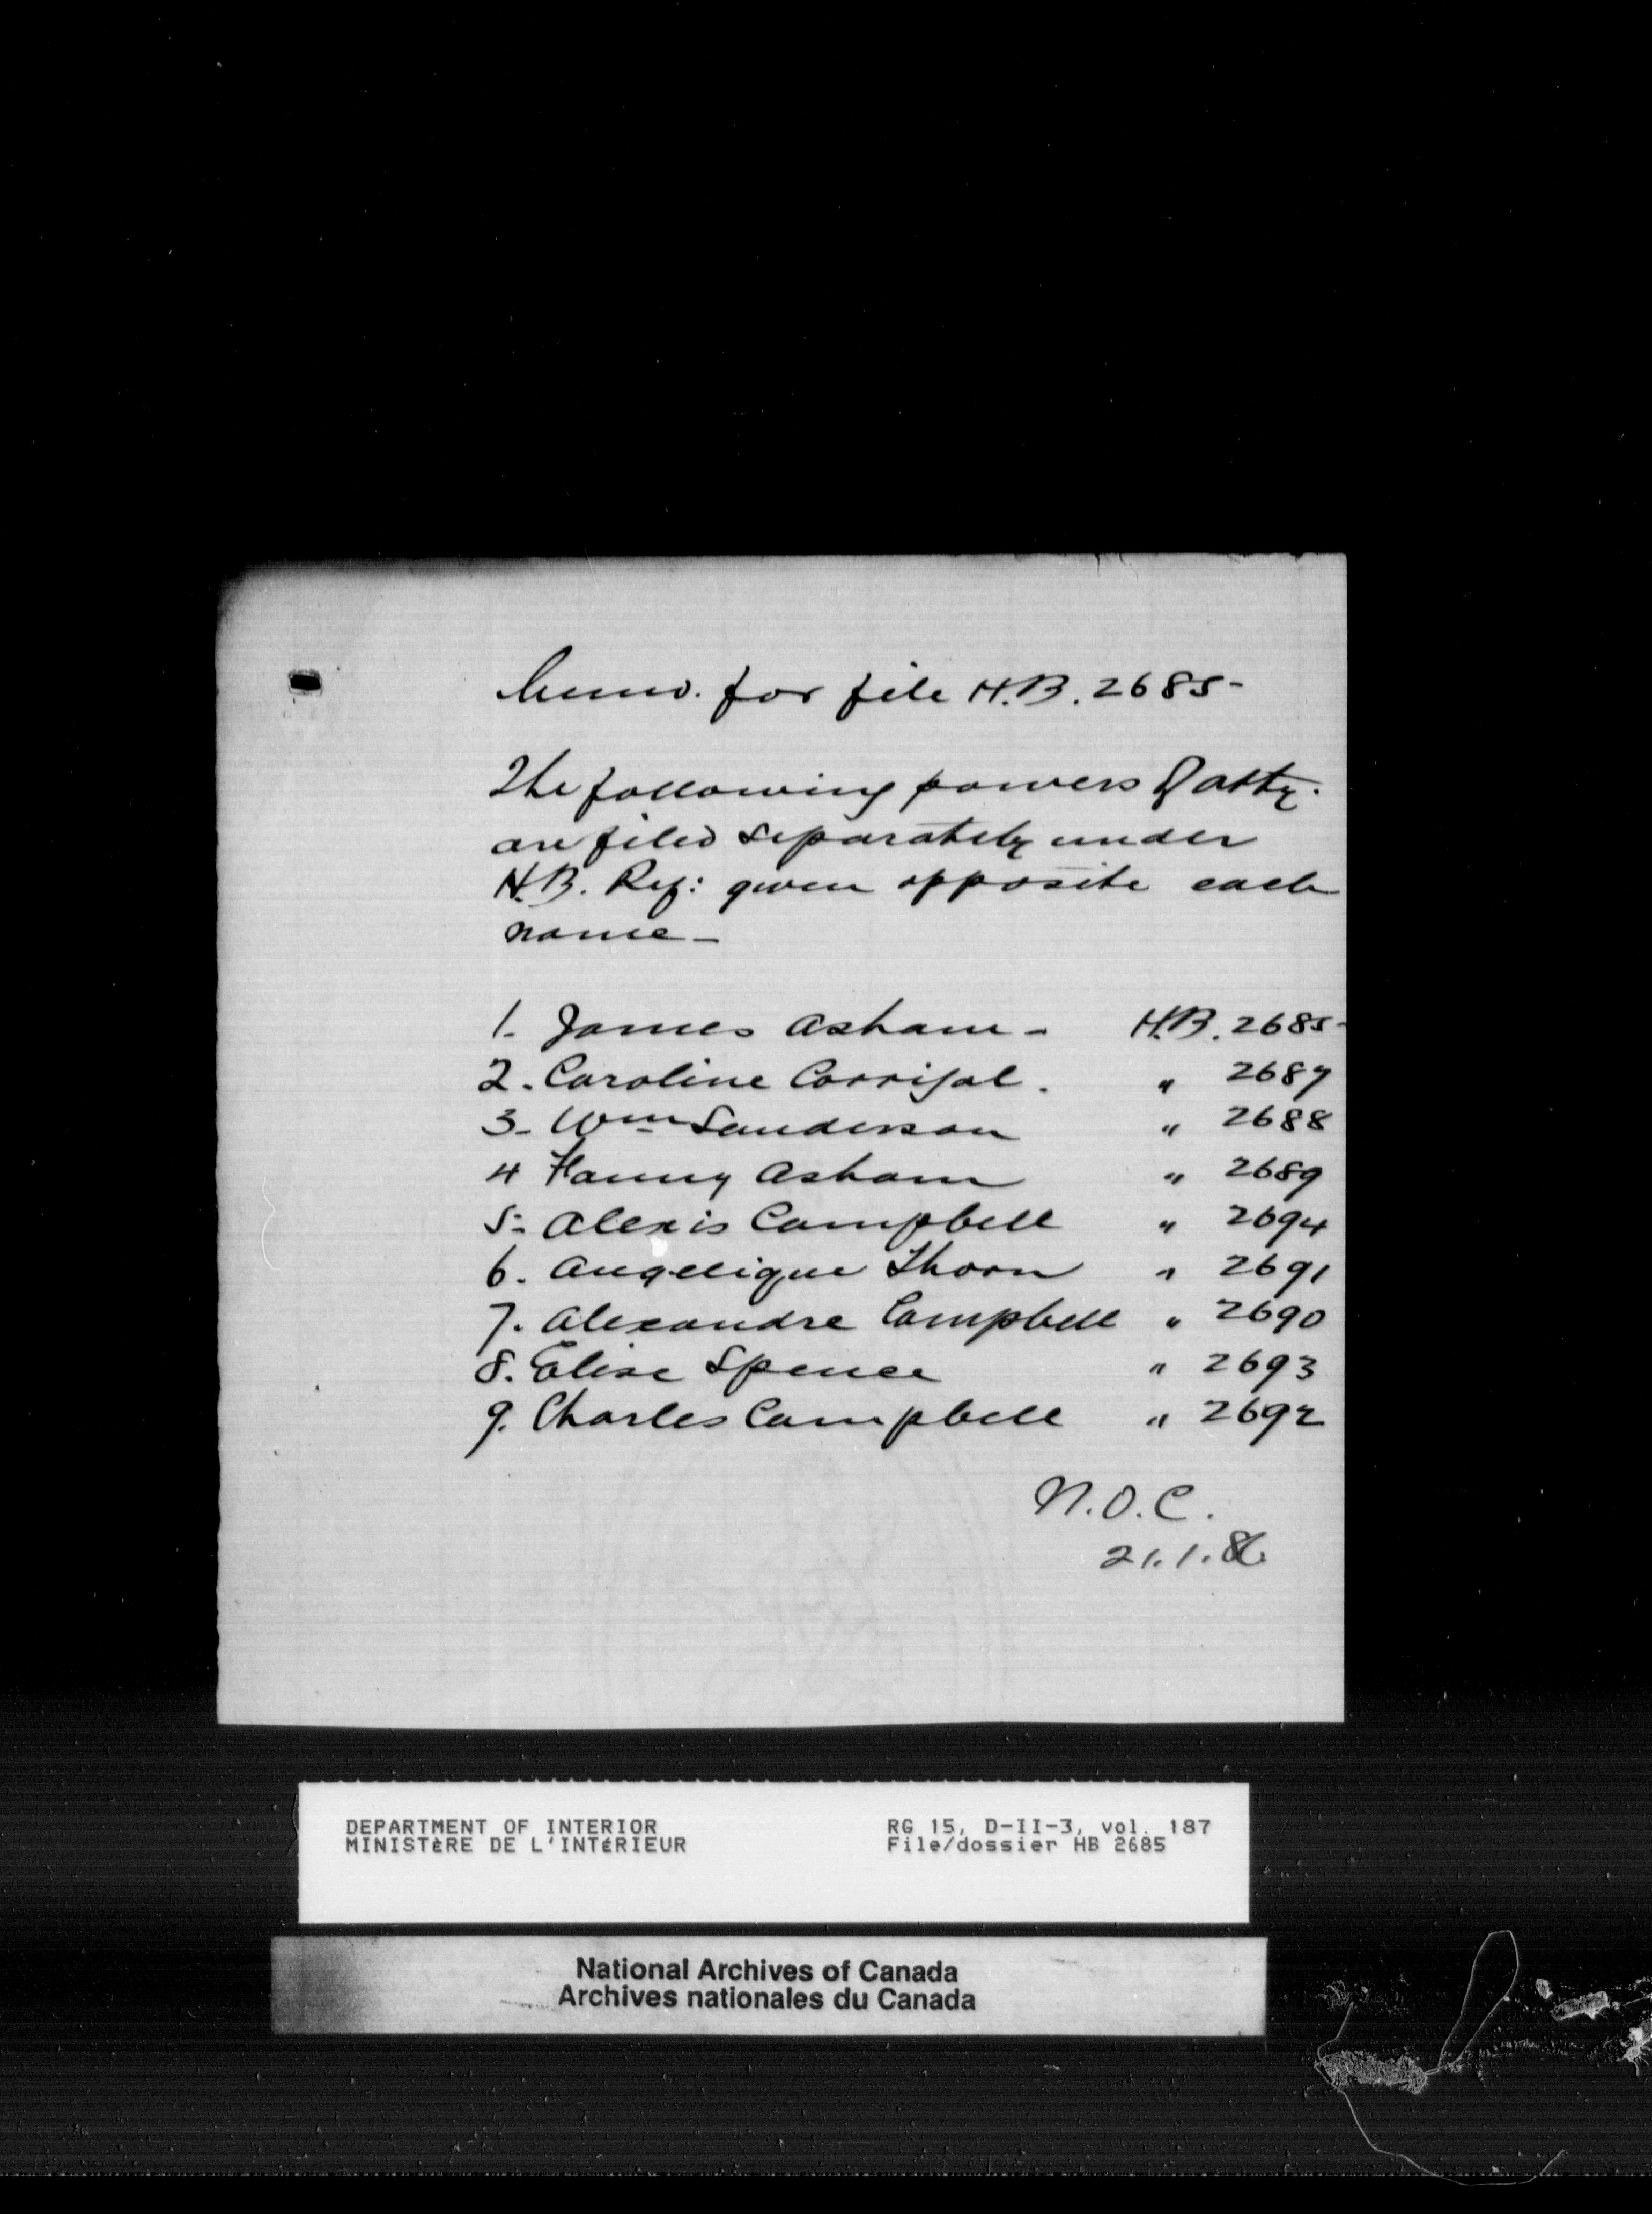 Memo. for file H.B. 2685-
The following powers of atty.
are filed separately under
H.B. Ref: given opposite each
name-
1- James Asham - H.B. 2685-
2. Caroline Corrigal. " 2687
3- Wm Sanderson " 2688
4 Fanny Asham " 2689
5- Alexis Campbell " 2694
6. Angelique Thorn " 2691
7. Alexandre Campbell " 2690
8. Elise Spence " 2693
9. Charles Campbell " 2692
N.O.C.
21.1.86
DEPARTMENT OF INTERIOR RG 15, D-II-3, vol. 187
MINISTÈRE DE L'INTÉRIEUR File/dossier HB 2685
National Archives of Canada
Archives nationales du Canada